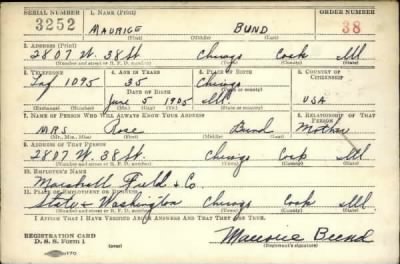 SERIAL NUMBER 1. NAME (Print) ORDER NUMBER
3252 MAURICE BUND 38
(First) (Middle) (Last)
2. ADDRESS (Print)
2807 W. 38 St. Chicago Cook Ill
(Number and street or R. F. D. number) (Town) (County) (State)
3. TELEPHONE 4. AGE IN YEARS 5. PLACE OF BIRTH 6. COUNTRY OF CITIZENSHIP
Laf 1095 35 Chicago
DATE OF BIRTH (Town or county)
June 5 1905 Ill USA
(Exchange) (Number) (Mo.) (Day) (Yr.) (State or country)
7. NAME OF PERSON WHO WILL ALWAYS KNOW YOUR ADDRESS 8. RELATIONSHIP OF THAT PERSON
MRS Rose Bund Mother
(Mr., Mrs., Miss) (First) (Middle) (Last)
9. ADDRESS OF THAT PERSON
2807 W 38 St. Chicago Cook Ill
(Number and street or R. F. D. number) (Town) (County) (State)
10. EMPLOYER'S NAME
Marshall Field & Co.
11. PLACE OF EMPLOYMENT OR BUSINESS
State & Washington Chicago Cook Ill
(Number and street or R. F. D. number) (Town) (County) (State)
I AFFIRM THAT I HAVE VERIFIED ABOVE ANSWERS AND THAT THEY ARE TRUE.
REGISTRATION CARD
D. S. S. Form 1 (over) Maurice Bund
(Registrant's signature)